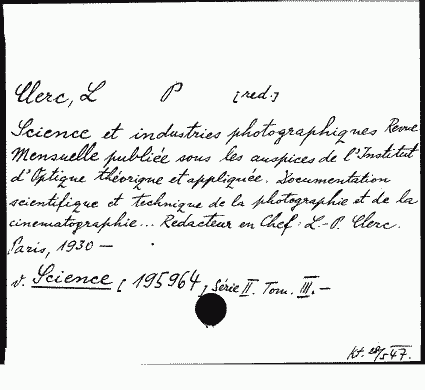 Clerc, L P [red.]
Science et industries photographiques Revue
Mensuelle publiée sous les auspices de l'Institut
d'Optique théorique et appliquée. Documentation
scientifique et technique de la photographie et de la
cinematographie... Rédacteur en Chef: L.-P. Clerc.
Paris, 1930 —
v. Science [195964] Série II. Tom. III. —
kt. 28/5 47.